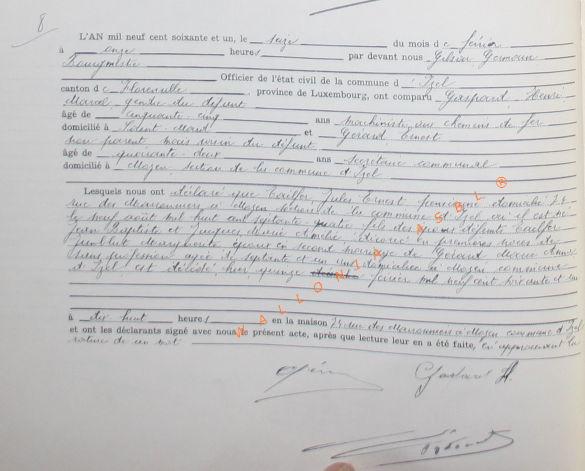 8
L'AN mil neuf cent soixante et un, le seize du mois de février
à onze heures par devant nous Gilson Germain
Bourgmestre
Officier de l'état civil de la commune d' Izel
canton de Florenville, province de Luxembourg, ont comparu Gaspard Henri
gendre du défunt
âgé de cinquante cinq ans machiniste aux chemins de fer
domicilié à Saint Mard et Gérard Ernest
non parent mais voisin du défunt
âgé de quarante deux ans secrétaire communal
domicilié à Moyen section de la commune d'Izel
Lesquels nous ont déclaré que Jules Ernest pensionné domicilié 24
rue des Marronniers à Moyen section de la commune d'Izel où il est né
le neuf août mil huit cent septante quatre fils des défunts
Jean Baptiste et Jacques Marie divorcé en premières noces de
Marguerite époux en second mariage de Gérard Marie
sans profession âgée de septante et un ans domiciliée à Moyen commune
d'Izel est décédé hier quinze février mil neuf cent soixante et un
à dix huit heures en la maison 24 rue des Marronniers à Moyen commune d'Izel
et ont les déclarants signé avec nous le présent acte, après que lecture leur en a été faite, en approuvant la
rature de un mot
WALLONIA ASBL ®
Gaspard H.